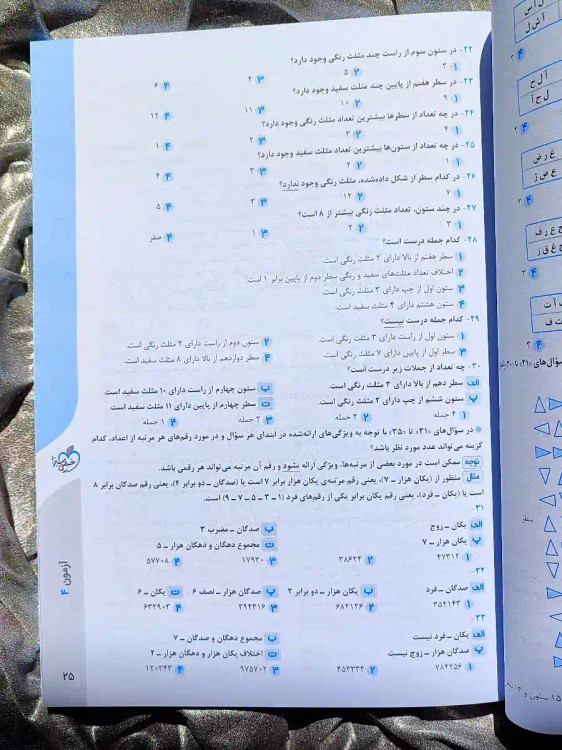 ۲۲- در ستون سوم از راست چند مثلث رنگی وجود دارد؟
۱ ۳ ۲ ۵ ۳ ۴ ۴ ۶
۲۳- در سطر هفتم از پایین چند مثلث سفید وجود دارد؟
۱ ۹ ۲ ۱۰ ۳ ۱۱ ۴ ۱۲
۲۴- در چه تعداد از سطرها بیشترین تعداد مثلث رنگی وجود دارد؟
۱ ۴ ۲ ۳ ۳ ۲ ۴ ۱
۲۵- در چه تعداد از ستون‌ها بیشترین تعداد مثلث سفید وجود دارد؟
۱ ۱ ۲ ۲ ۳ ۳ ۴ ۴
۲۶- در کدام سطر از شکل داده‌شده، مثلث رنگی وجود ندارد؟
۱ ۷ ۲ ۱۲ ۳ ۳ ۴ ۵
۲۷- در چند ستون، تعداد مثلث رنگی بیشتر از ۸ است؟
۱ ۳ ۲ ۲ ۳ ۱ ۴ صفر
۲۸- کدام جمله درست است؟
۱ سطر هفتم از بالا دارای ۲ مثلث رنگی است.
۲ اختلاف تعداد مثلث‌های سفید و رنگی سطر دوم از پایین برابر ۱ است.
۳ ستون اول از چپ دارای ۳ مثلث رنگی است.
۴ ستون هشتم دارای ۴ مثلث سفید است.
۲۹- کدام جمله درست نیست؟
۱ ستون اول از راست دارای ۳ مثلث رنگی است. ۲ ستون دوم از راست دارای ۴ مثلث رنگی است.
۳ سطر اول از پایین دارای ۷ مثلث رنگی است. ۴ سطر دوازدهم از بالا دارای ۸ مثلث سفید است.
۳۰- چه تعداد از جملات زیر درست است؟
الف سطر دهم از بالا دارای ۳ مثلث رنگی است. ب ستون چهارم از راست دارای ۱۰ مثلث سفید است.
پ ستون ششم از چپ دارای ۲ مثلث رنگی است. ت سطر چهارم از پایین دارای ۱۱ مثلث سفید است.
۱ ۴ جمله ۲ ۳ جمله ۳ ۲ جمله ۴ ۱ جمله
● در سؤال‌های «۳۱» تا «۳۵» با توجه به ویژگی‌های ارائه‌شده در ابتدای هر سؤال و در مورد رقم‌های هر مرتبه از اعداد، کدام
گزینه می‌تواند عدد مورد نظر باشد؟
توجه ممکن است در مورد بعضی از مرتبه‌ها، ویژگی ارائه نشود و رقم آن مرتبه می‌تواند هر رقمی باشد.
مثال منظور از (یکان هزار ــ ۷)، یعنی رقم مرتبه‌ی یکان هزار برابر ۷ است یا (صدگان ــ دو برابر ۴)، یعنی رقم صدگان برابر ۸
است یا (یکان ــ فرد)، یعنی رقم یکان برابر یکی از رقم‌های فرد (۱ ــ ۳ ــ ۵ ــ ۷ ــ ۹) است.
۳۱-
الف یکان ــ زوج ب صدگان ــ مضرب ۳
پ یکان هزار ــ ۷ ت مجموع دهگان و دهگان هزار ــ ۵
۱ ۴۷۳۱۲ ۲ ۳۸۶۲۴ ۳ ۱۷۹۳۰ ۴ ۵۷۷۰۸
۳۲-
الف صدگان ــ فرد ب یکان هزار ــ دو برابر ۲ پ صدگان هزار ــ نصف ۶ ت یکان ــ ۶
۱ ۳۵۴۱۴۳ ۲ ۶۸۴۱۲۶ ۳ ۳۹۴۳۱۶ ۴ ۶۳۲۹۰۳
۳۳-
الف یکان ــ فرد نیست ب مجموع دهگان و صدگان ــ ۷
پ صدگان هزار ــ زوج نیست ت اختلاف یکان هزار و دهگان هزار ــ ۲
۱ ۷۸۴۲۵۶ ۲ ۴۵۳۳۳۴ ۳ ۹۷۵۷۰۲ ۴ ۱۲۰۳۴۳
آزمون ۴
۲۵